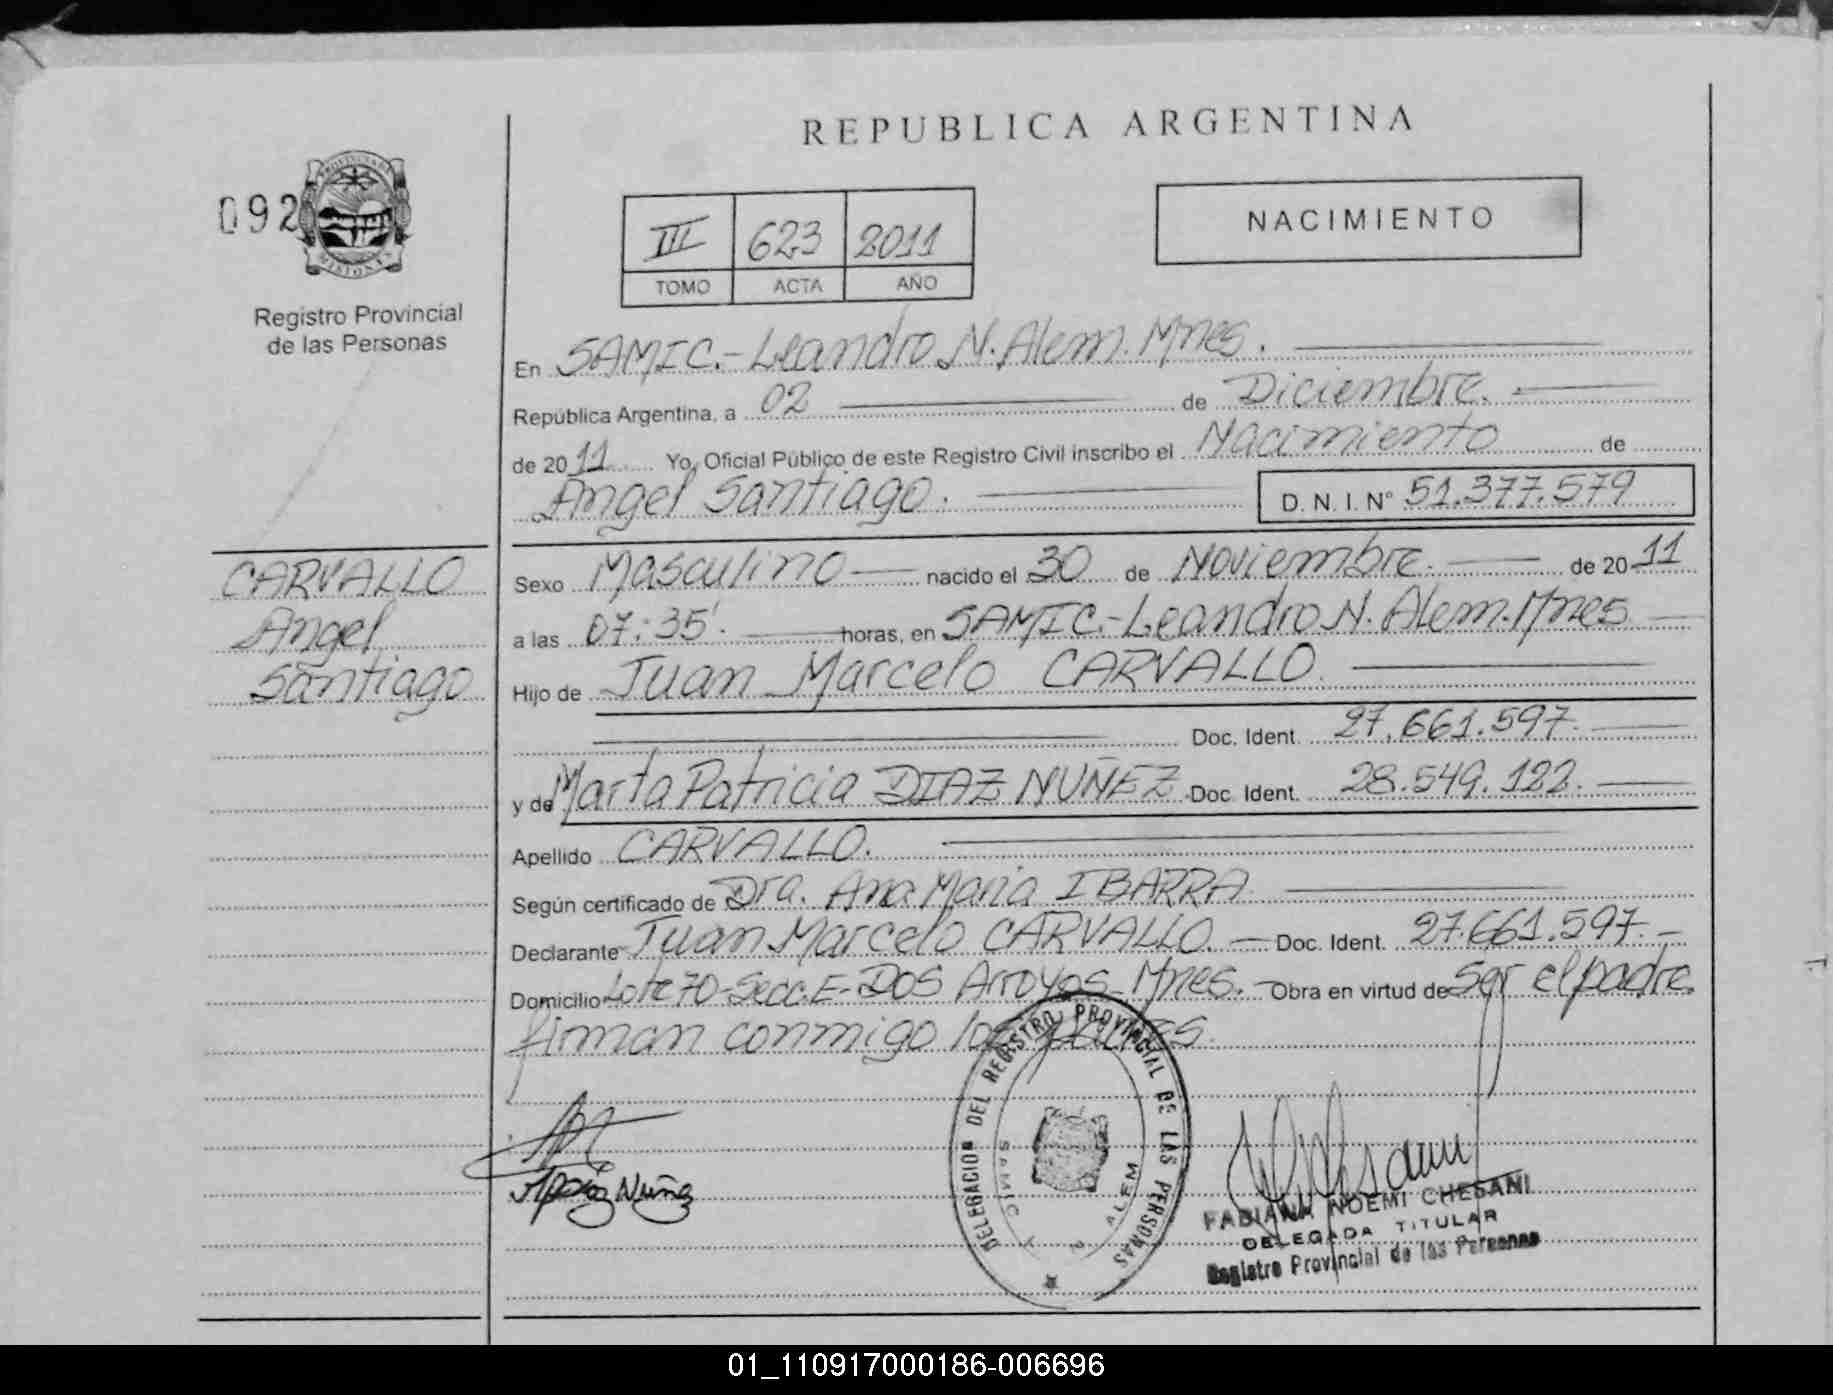 REPUBLICA ARGENTINA
092
PROVINCIA DE
MISIONES
Registro Provincial
de las Personas
III 623 2011
TOMO ACTA AÑO
NACIMIENTO
En SAMIC.-Leandro N. Alem. Mnes.
República Argentina, a 02 de Diciembre.
de 2011 Yo, Oficial Público de este Registro Civil inscribo el Nacimiento de
Angel Santiago. D.N.I. Nº 51.377.579
CARVALLO
Angel
Santiago
Sexo Masculino nacido el 30 de Noviembre. de 2011
a las 07:35'. horas, en SAMIC.-Leandro N. Alem. Mnes
Hijo de Juan Marcelo CARVALLO.
Doc. Ident. 27.661.597.
y de Marta Patricia DIAZ NUÑEZ Doc. Ident. 28.549.122.
Apellido CARVALLO.
Según certificado de Dra. Ana Maria IBARRA
Declarante Juan Marcelo CARVALLO. Doc. Ident. 27.661.597.
Domicilio Lote 70-Secc.E-DOS Arroyos-Mnes. Obra en virtud de ser el padre.
firman conmigo los padres.
DELEGACION DEL REGISTRO PROVINCIAL DE LAS PERSONAS
SAMIC
ALEM
Diaz Nuñez
FABIANA NOEMI CHESANI
DELEGADA TITULAR
Registro Provincial de las Personas
01_110917000186-006696